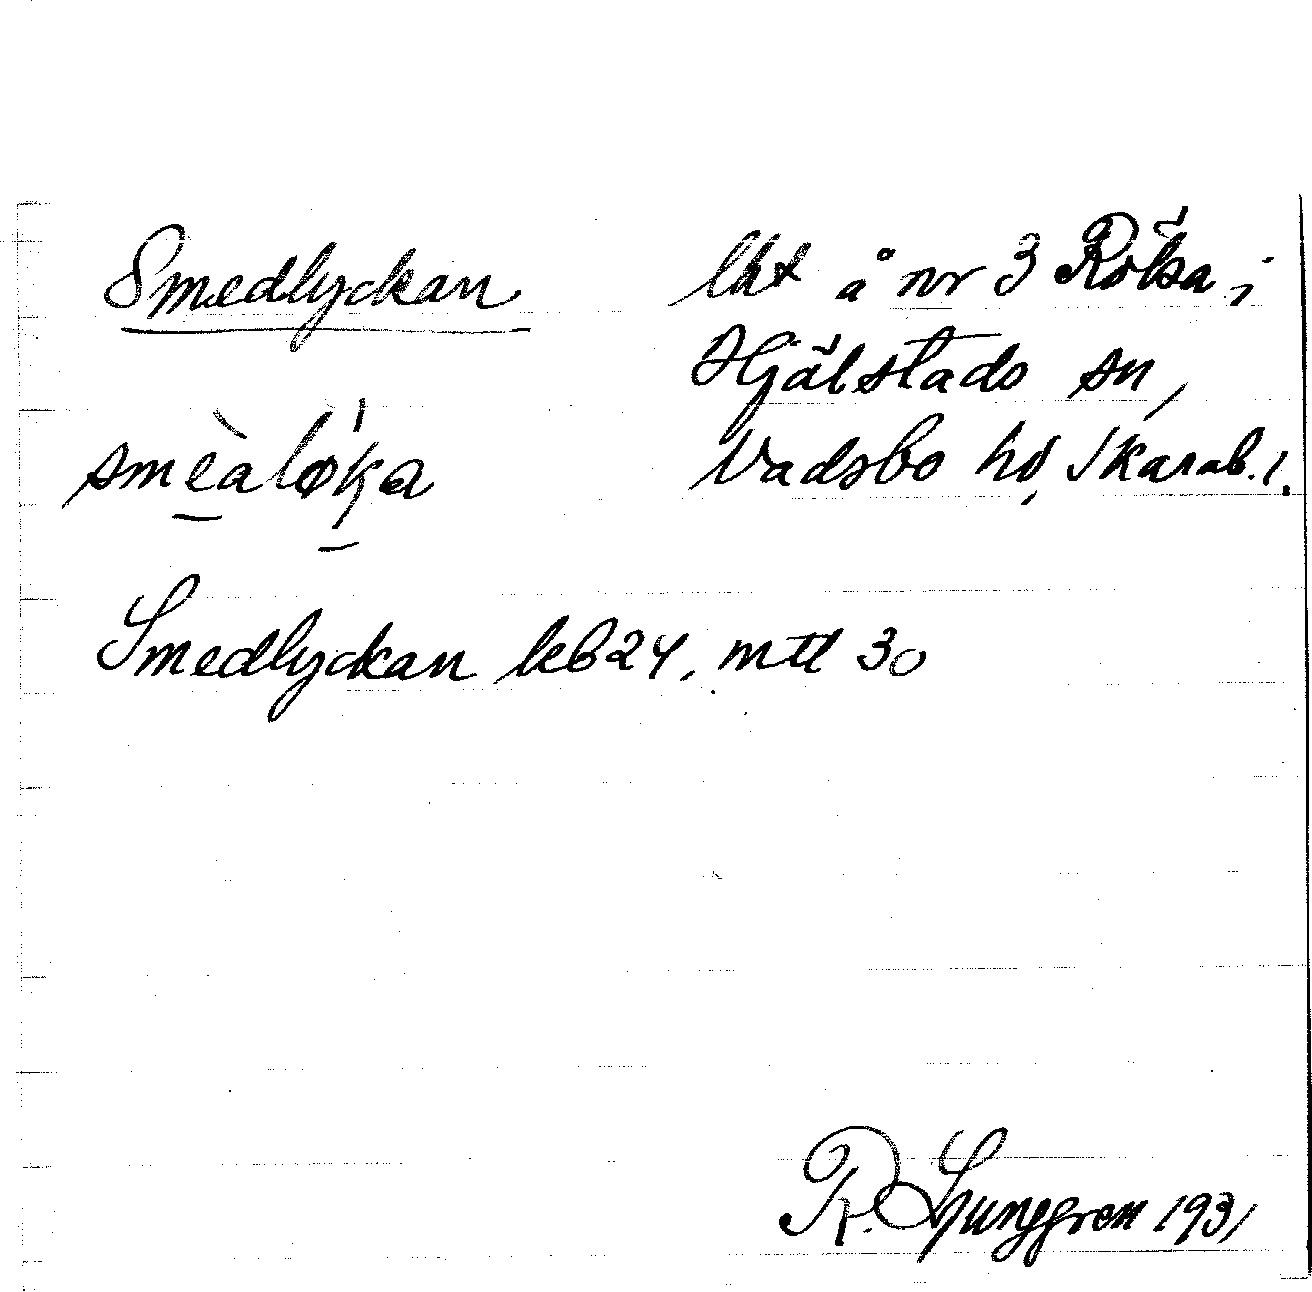 Smedlyckan lht å nr 3 Röksa i
Hjälstads sn,
smèaløka Vadsbo hd, Skarab. l.
Smedlyckan leb 24, mtl 30
R. Ljunggren 1931